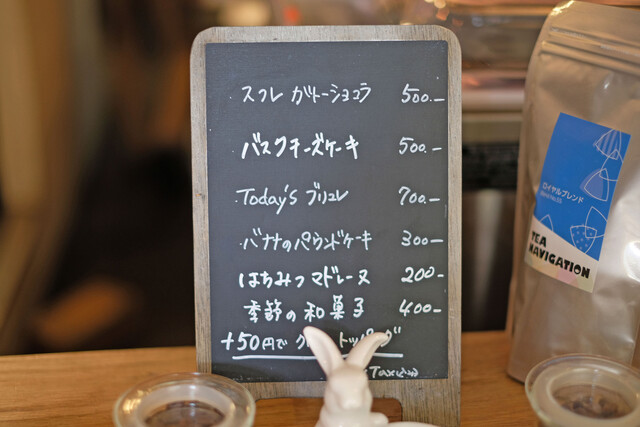 スフレ ガトーショコラ 500.-
バスクチーズケーキ 500.-
Today's ブリュレ 700.-
バナナのパウンドケーキ 300-
はちみつマドレーヌ 200-
季節の和菓子 400-
+50円で トッピング
Tax込み
ロイヤルブレンド
TEA
NAVIGATION